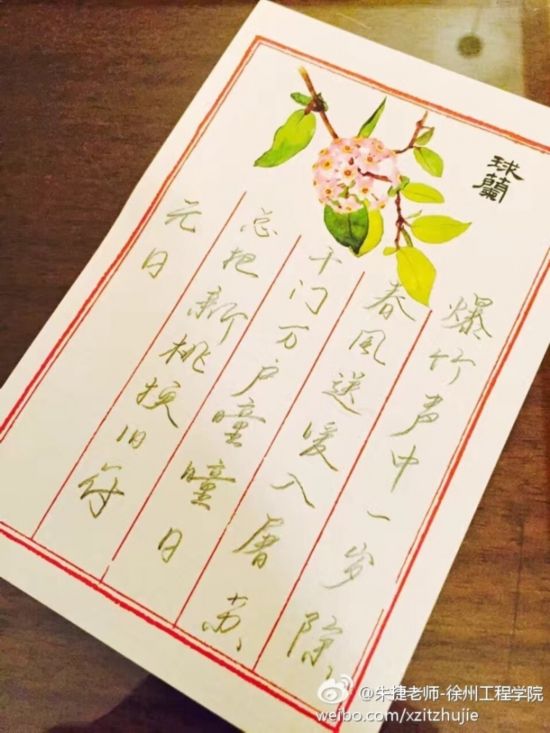 球蘭
爆竹声中一岁除
春风送暖入屠苏
千门万户曈曈日
总把新桃换旧符
元日
@朱捷老师-徐州工程学院
weibo.com/xzitzhujie